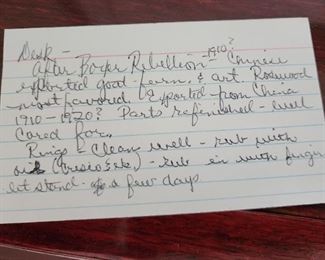 Desk -
1910?
After Boxer Rebellion - Chinese
exported good furn. & art. Rosewood
most favored. Exported from China
1910-1920? Parts refinished - well
cared for.
Rings - Clean well - rub with
oil - rub in with finger
let stand a few days